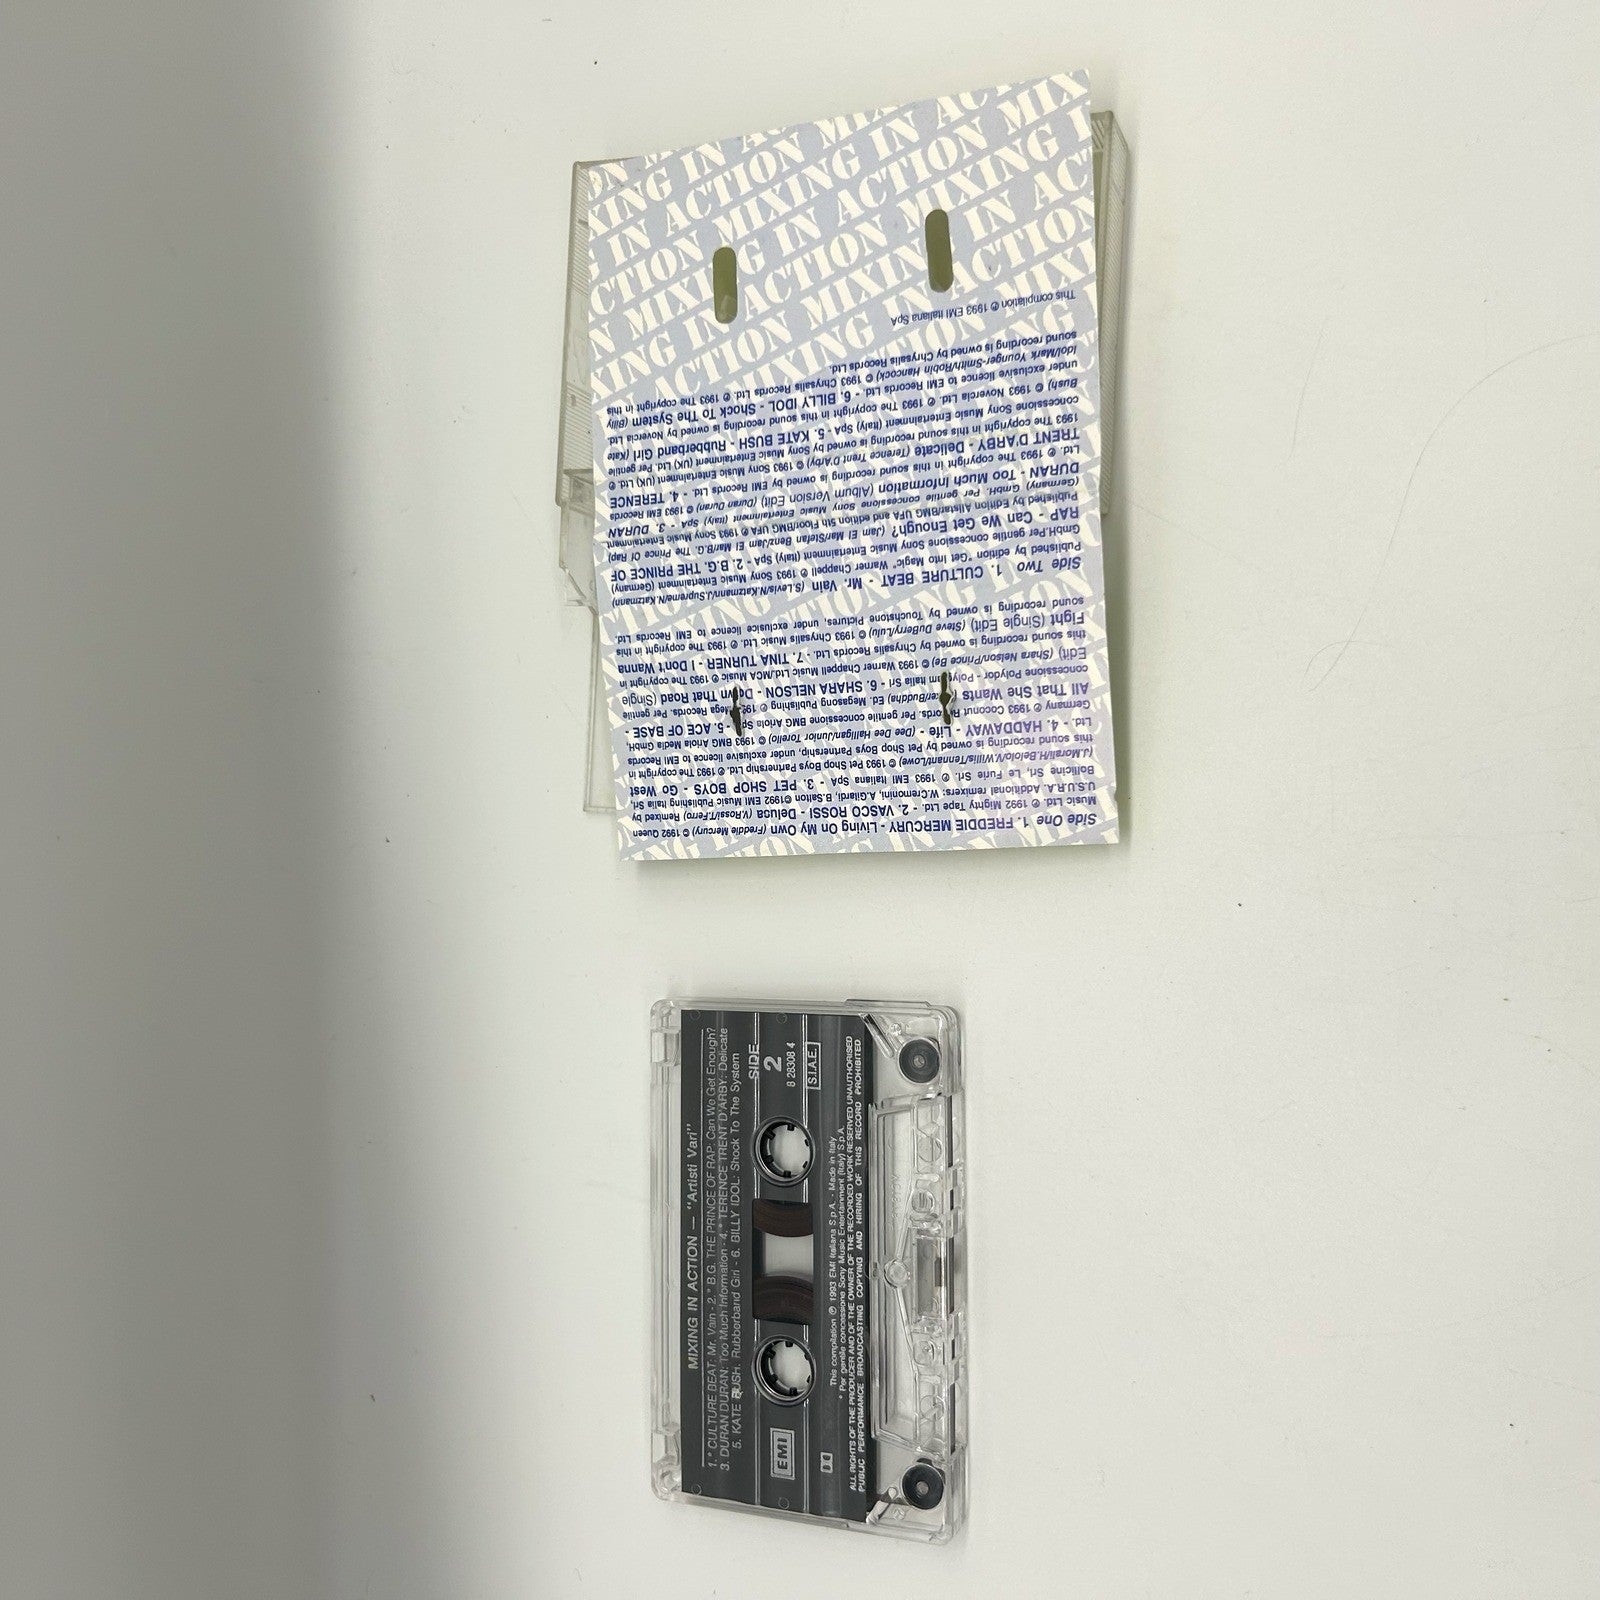 MIXING IN ACTION MIXING IN ACTION
Side One 1. FREDDIE MERCURY - Living On My Own (Freddie Mercury) © 1992 Queen
Music Ltd. ℗ 1992 Mighty Tape Ltd. - 2. VASCO ROSSI - Delusa (V.Rossi/T.Ferro) Remixed by
U.S.U.R.A. Additional remixers: W.Cremonini, A.Gilardi, B.Salton ©1992 EMI Music Publishing Italia Srl,
Bollicine Srl, Le Furie Srl. ℗ 1993 EMI Italiana SpA - 3. PET SHOP BOYS - Go West
(J.Morali/H.Belolo/V.Willis/Tennant/Lowe) © 1993 Pet Shop Boys Partnership Ltd ℗ 1993 The copyright in
this sound recording is owned by Pet Shop Boys Partnership, under exclusive licence to EMI Records
Ltd. - 4. HADDAWAY - Life - (Dee Dee Halligan/Junior/Torello) © 1993 BMG Ariola Media GmbH,
Germany ℗ 1993 Coconut Records. Per gentile concessione BMG Ariola SpA - 5. ACE OF BASE -
All That She Wants Ed. Megasong Publishing Mega Records. Per gentile
concessione Polydor - Polygram Italia Srl - 6. SHARA NELSON - Down That Road (Single
Edit) (Shara Nelson/Prince Be) © 1993 Warner Chappell Music Ltd./MCA Music ℗ 1993 The copyright in
this sound recording is owned by Chrysalis Records Ltd. - 7. TINA TURNER - I Don't Wanna
Fight (Single Edit) (Steve DuBerry/Lulu) © 1993 Chrysalis Music Ltd. ℗ 1993 The copyright in this
sound recording is owned by Touchstone Pictures, under exclusice licence to EMI Records Ltd.
Side Two 1. CULTURE BEAT - Mr. Vain (S.Levis/N.Katzmann/J.Supreme/N.Katzmann)
Published by edition "Get Into Magic" Warner Chappell ℗ 1993 Sony Music Entertainment (Germany)
GmbH.Per gentile concessione Sony Music Entertainment (Italy) SpA - 2. B.G. THE PRINCE OF
RAP - Can We Get Enough? (Jam El Mar/Stefan Benz/Jam El Mar/B.G. The Prince Of Rap)
Published by Allstar/BMG UFA and edition 5th Floor/BMG UFA ℗ 1993 Sony Music Entertainment
(Germany) GmbH. Per gentile concessione Sony Music Entertainment (Italy) SpA - 3. DURAN
DURAN - Too Much Information (Album Version Edit) (Duran Duran) © 1993 EMI Records
Ltd. ℗ 1993 The copyright in this sound recording is owned by EMI Records Ltd. - 4. TERENCE
TRENT D'ARBY - Delicate (Terence Trent D'Arby) © 1993 Sony Music Entertainment (UK) Ltd. ℗
1993 The copyright in this sound recording is owned by Sony Music Entertainment (UK) Ltd. Per gentile
concessione Sony Music Entertainment (Italy) SpA - 5. KATE BUSH - Rubberband Girl (Kate
Bush) © 1993 Novercia Ltd. ℗ 1993 The copyright in this sound recording is owned by Novercia Ltd
under exclusive licence to EMI Records Ltd. - 6. BILLY IDOL - Shock To The System (Billy
Idol/Mark Younger-Smith/Robin Hancock) © 1993 Chrysalis Records Ltd. ℗ 1993 The copyright in this
sound recording is owned by Chrysalis Records Ltd.
This compilation ℗ 1993 EMI Italiana SpA
MIXING IN ACTION — "Artisti Vari"
1.* CULTURE BEAT: Mr. Vain - 2.* B.G. THE PRINCE OF RAP: Can We Get Enough?
3. DURAN DURAN: Too Much Information - 4.* TERENCE TRENT D'ARBY: Delicate
5. KATE BUSH: Rubberband Girl - 6. BILLY IDOL: Shock To The System
SIDE
2
8 28308 4
S.I.A.E.
EMI
This compilation ℗ 1993 EMI Italiana S.p.A. - Made in Italy
* Per gentile concessione Sony Music Entertainment (Italy) S.p.A.
ALL RIGHTS OF THE PRODUCER AND OF THE OWNER OF THE RECORDED WORK RESERVED UNAUTHORISED
PUBLIC PERFORMANCE BROADCASTING COPYING AND HIRING OF THIS RECORD PROHIBITED